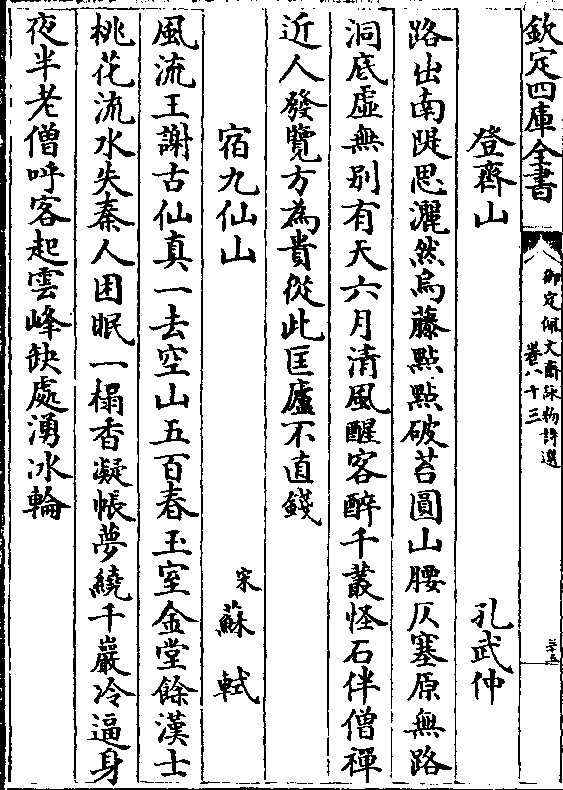 欽定四庫全書
御定佩文齋詠物詩選
卷八十三
三十五
登齊山
孔武仲
路出南隄思灑然烏藤點點破苔圓山腰仄塞原無路
洞底虛無别有天六月清風醒客醉千叢怪石伴僧禪
近人發覽方為貴從此匡廬不直錢
宿九仙山
宋
蘇軾
風流王謝古仙真一去空山五百春玉室金堂餘漢士
桃花流水失秦人困眠一榻香凝帳夢繞千巖冷逼身
夜半老僧呼客起雲峰缺處湧冰輪